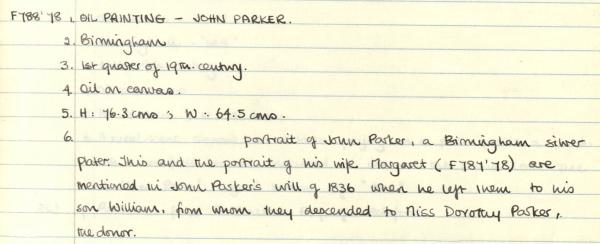 F788'78 1. OIL PAINTING - JOHN PARKER.
2. Birmingham
3. 1st quarter of 19th. century.
4. Oil on canvas.
5. H: 76.3 cms ; W: 64.5 cms.
6. portrait of John Parker, a Birmingham silver
plater. This and the portrait of his wife Margaret (F787'78) are
mentioned in John Parker's will of 1836 when he left them to his
son William, from whom they descended to Miss Dorothy Parker,
the donor.